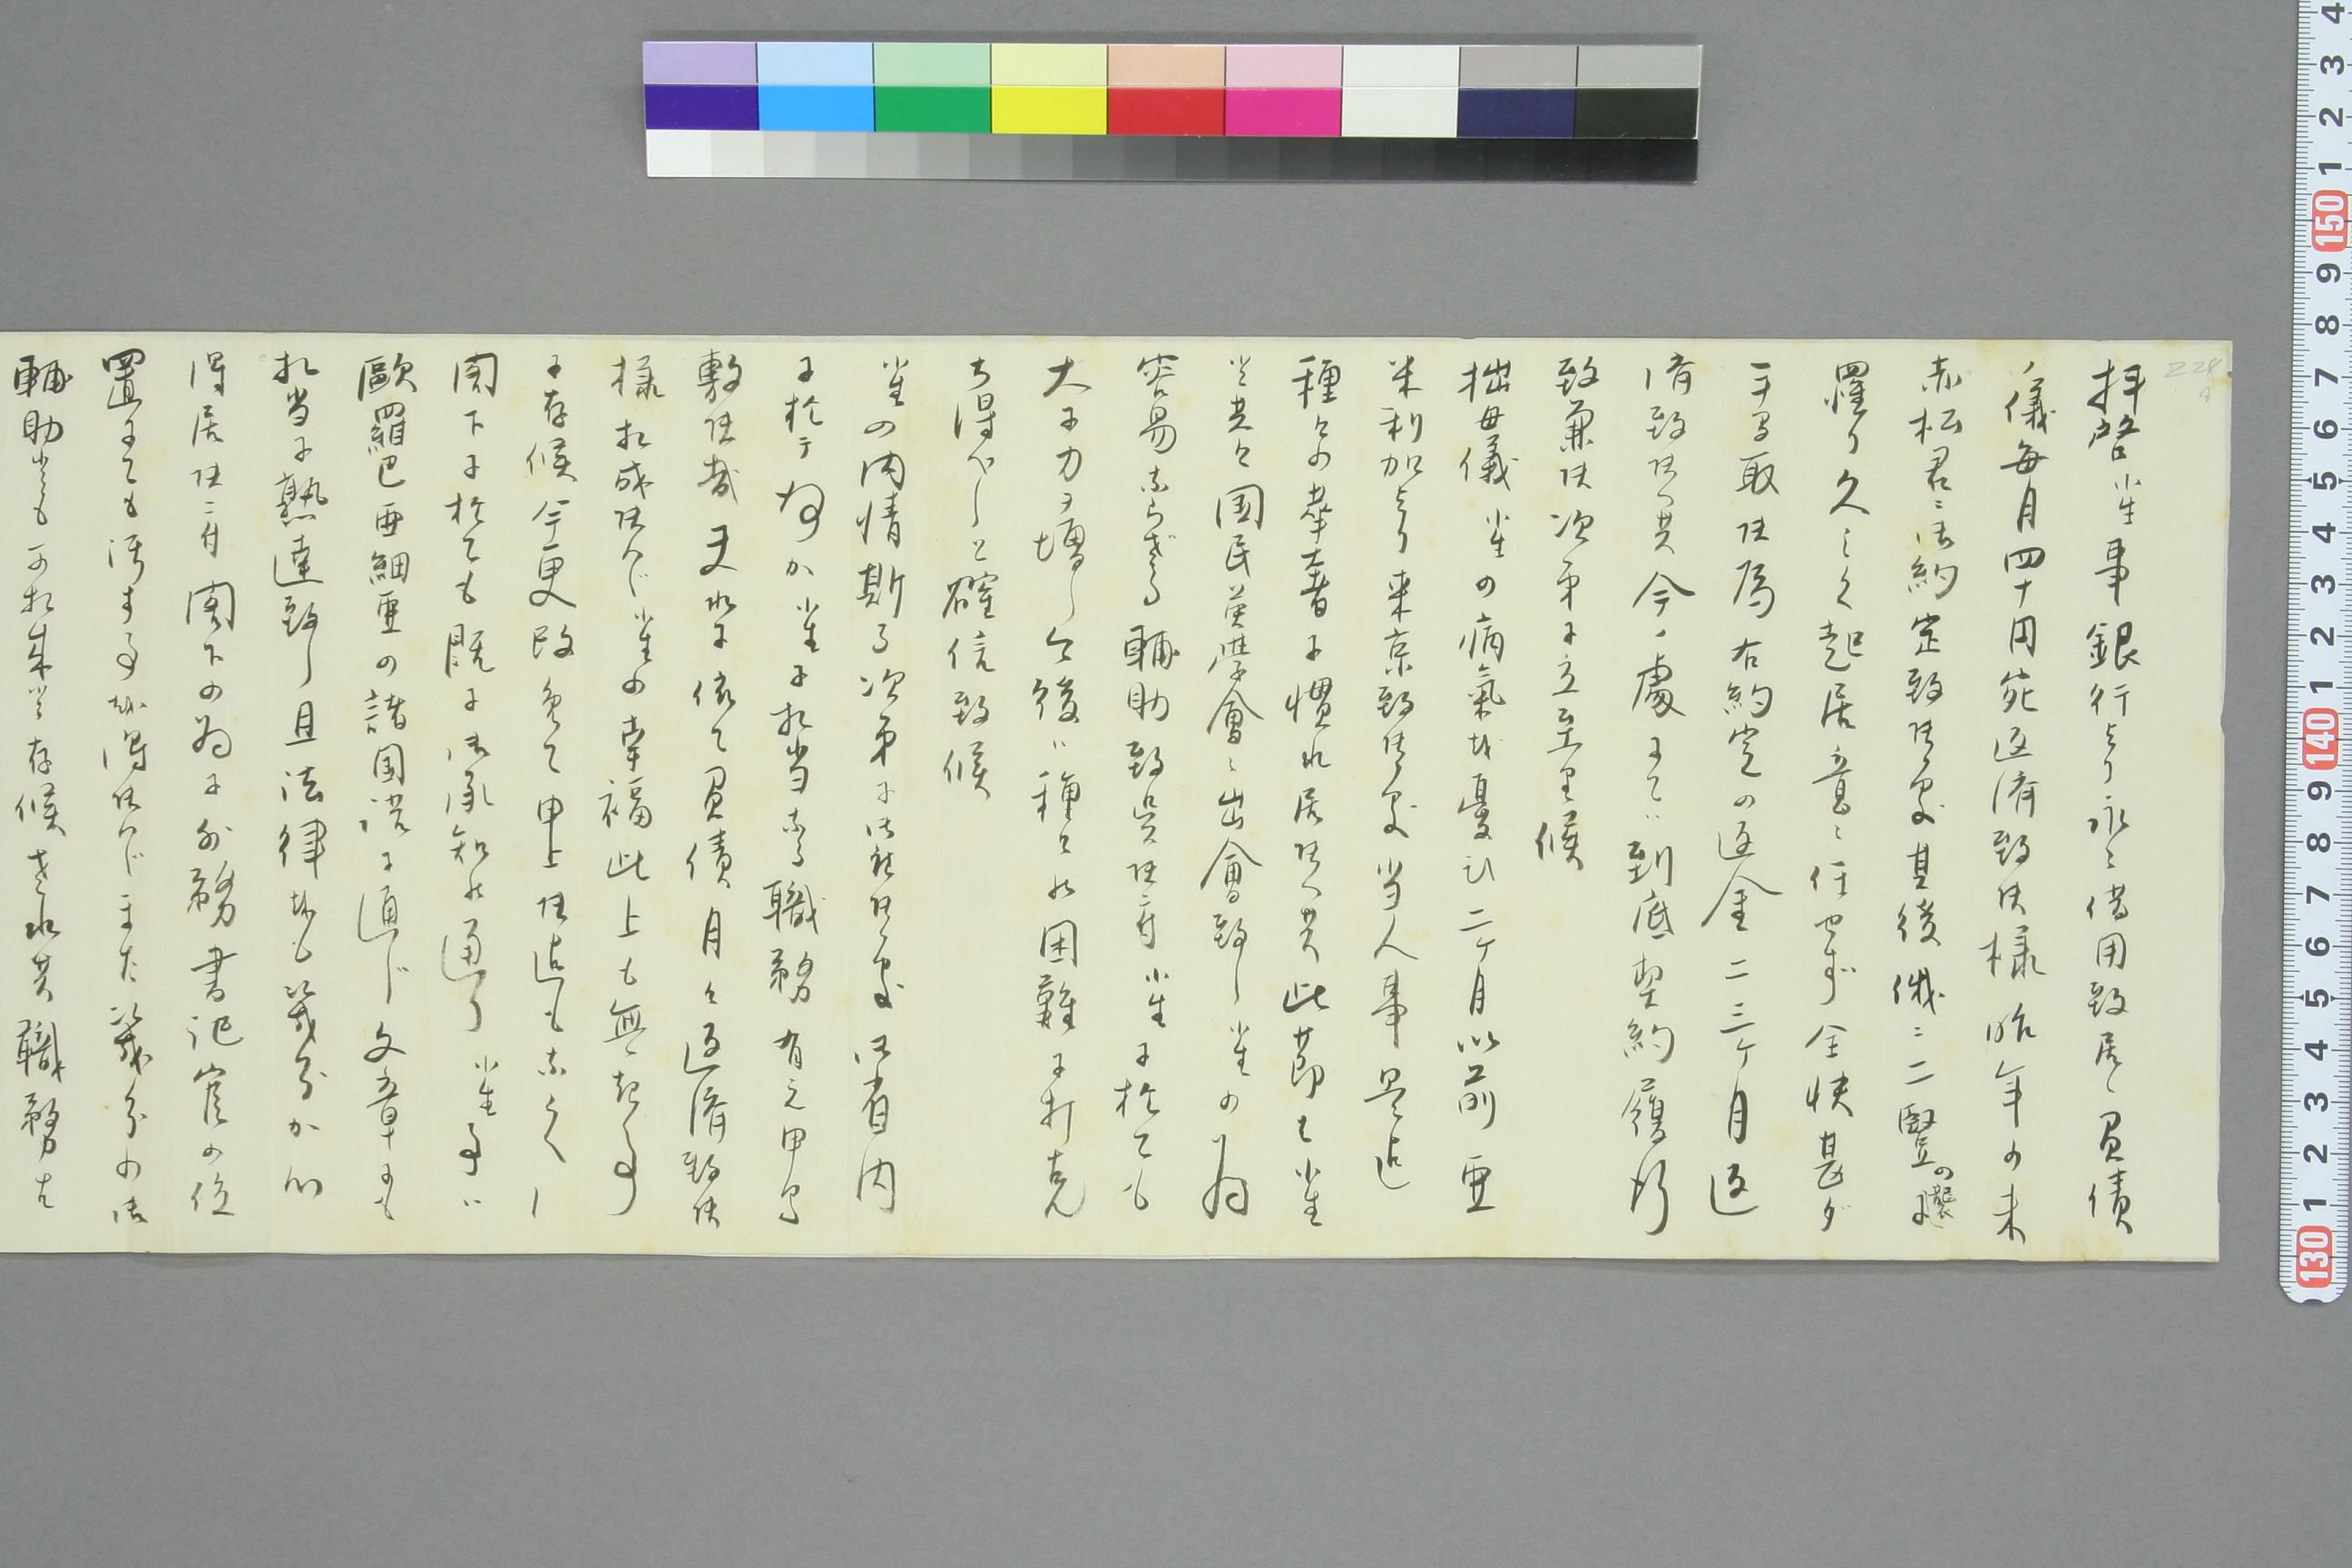 拝啓 小生事銀行より永々借用致居候負債
ノ儀毎月四十円宛返済致候様昨年の末
赤松君ニ御約定致候処其後俄ニ二豎の襲に
罹り久しく起居意ニ任せず全快甚ダ
手間取候為右約定の返金二三ヶ月返
済致候へ共今ノ處にてハ到底契約履行
致兼候次第に立至里候
拙母儀小生の病氣を憂ひ二ヶ月以前亜
米利加より来京致候処当人事是迄
種々の辛苦に慣れ居候へ共此節も小生
と共々国民英學會ニ出會致し小生の為
容易ならざる輔助致呉候付小生に於ても
大に力ヲ増し今後ハ種々の困難に打克
ち得べしと確信致候
小生の内情斯る次第に御座候処御省内
に於テ何か小生に相当なる職務有之申間
敷候哉 夫れに依て負債月々返済致候
様相成候へバ小生の幸福此上も無き事
に存候 今更改めて申上候迄もなく
閣下に於ても既に御承知の通り小生事ハ
歐羅巴亜細亜の諸国語に通じ文章にも
相当に熟達致し且法律をも幾分か心
得居候ニ付閣下の為に外務書記官の位
置にても汚す事を得候へバまた幾分の御
輔助とも可相成と存候 されど其職務は
228
130
140
150
1
2
3
4
5
6
7
8
9